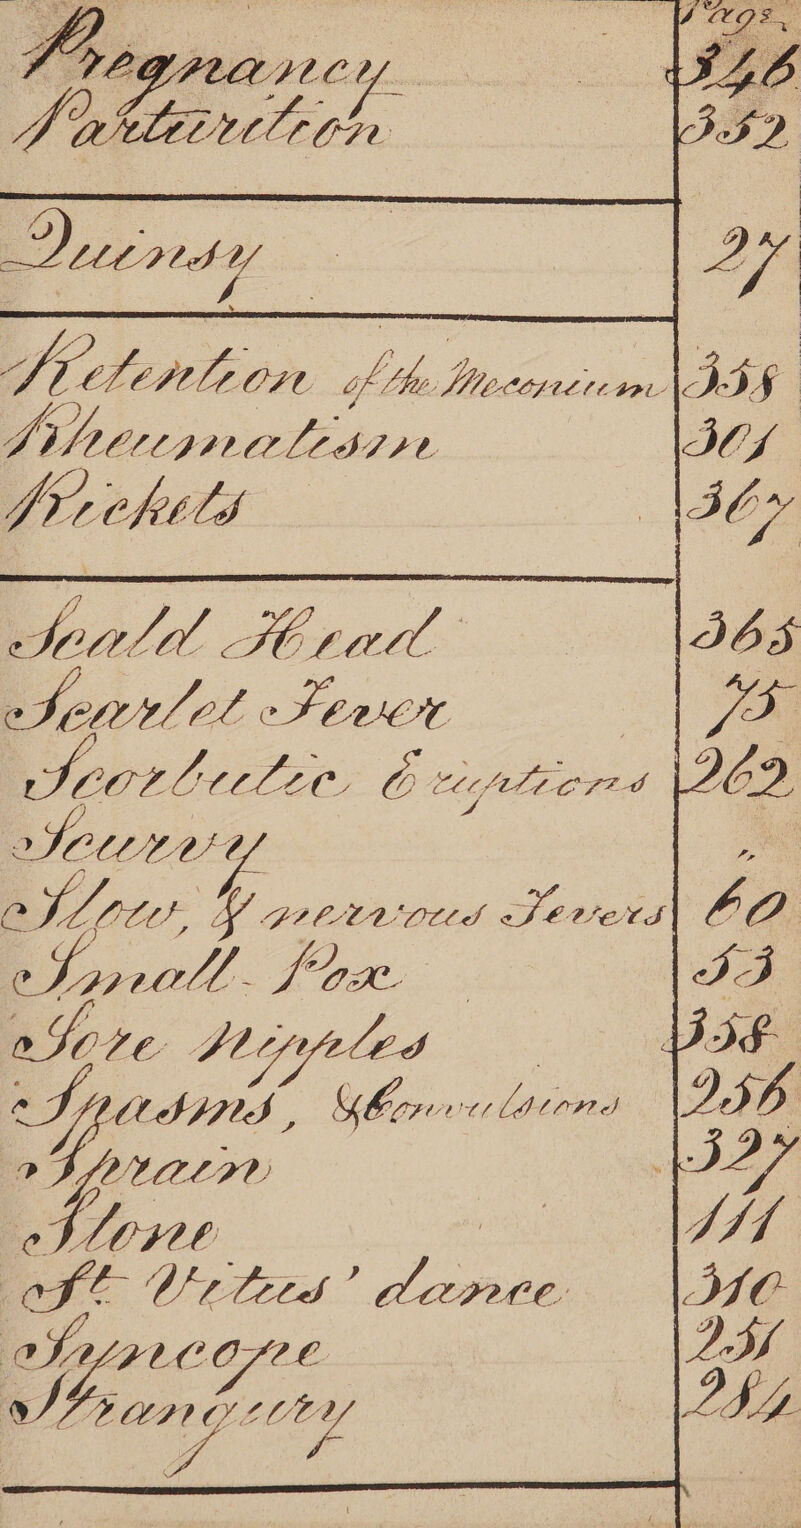 Page
Pregnancy 346
Parturition 352
Quinsy 27
Retention of the Meconium 358
Rheumatism 301
Rickets 367
Scald Head 365
Scarlet Fever 75
Scorbutic Eruptions 262
Scurvy "
Slow, & nervous Fevers 60
Small-Pox 53
Sore Nipples 358
Spasms, & Convulsions 256
Sprain 327
Stone 111
St Vitus' dance 310
Syncope 251
Strangury 284